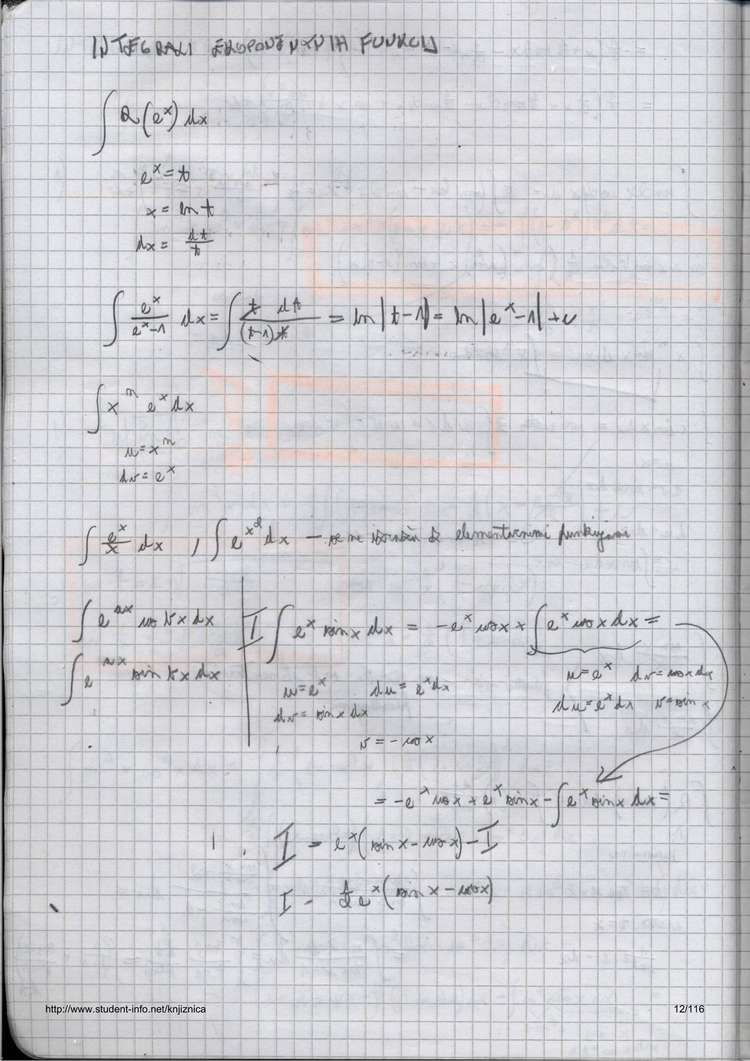 INTEGRALI EKSPONENTNIH FUNKCIJ
∫ R(e^x) dx
e^x = t
x = ln t
dx = dt/t
∫ e^x/(e^x-1) dx = ∫ t dt/((t-1)t) = ln|t-1| = ln|e^x-1| + c
∫ x^n e^x dx
u = x^n
dv = e^x
∫ e^x/x dx , ∫ e^{x^2} dx — se ne z elementarnimi funkcijami
∫ e^{ax} cos bx dx
∫ e^{ax} sin bx dx
I ∫ e^x sin x dx = -e^x cos x + ∫ e^x cos x dx =
u = e^x du = e^x dx
dv = sin x dx
v = -cos x
u = e^x dv = cos x dx
du = e^x dx v = sin x
= -e^x cos x + e^x sin x - ∫ e^x sin x dx =
I = e^x (sin x - cos x) - I
I = 1/2 e^x (sin x - cos x)
http://www.student-info.net/knjiznica
12/116